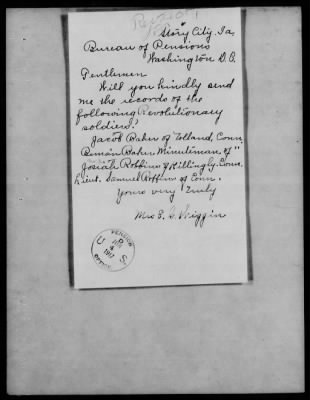 Story City, Ia.
Bureau of Pensions
Washington D.C.
Gentlemen
Will you kindly send
me the records of the
following Revolutionary
soldiers?
Jacob Baker of Tolland, Conn.
Baker Minuteman of "
Josiah Robbins of Killingly, Conn.
Lieut. Samuel Robbins of Conn.
Yours very truly
Mrs E. G. Wiggin
PENSION
U. S.
1917
OFFICE